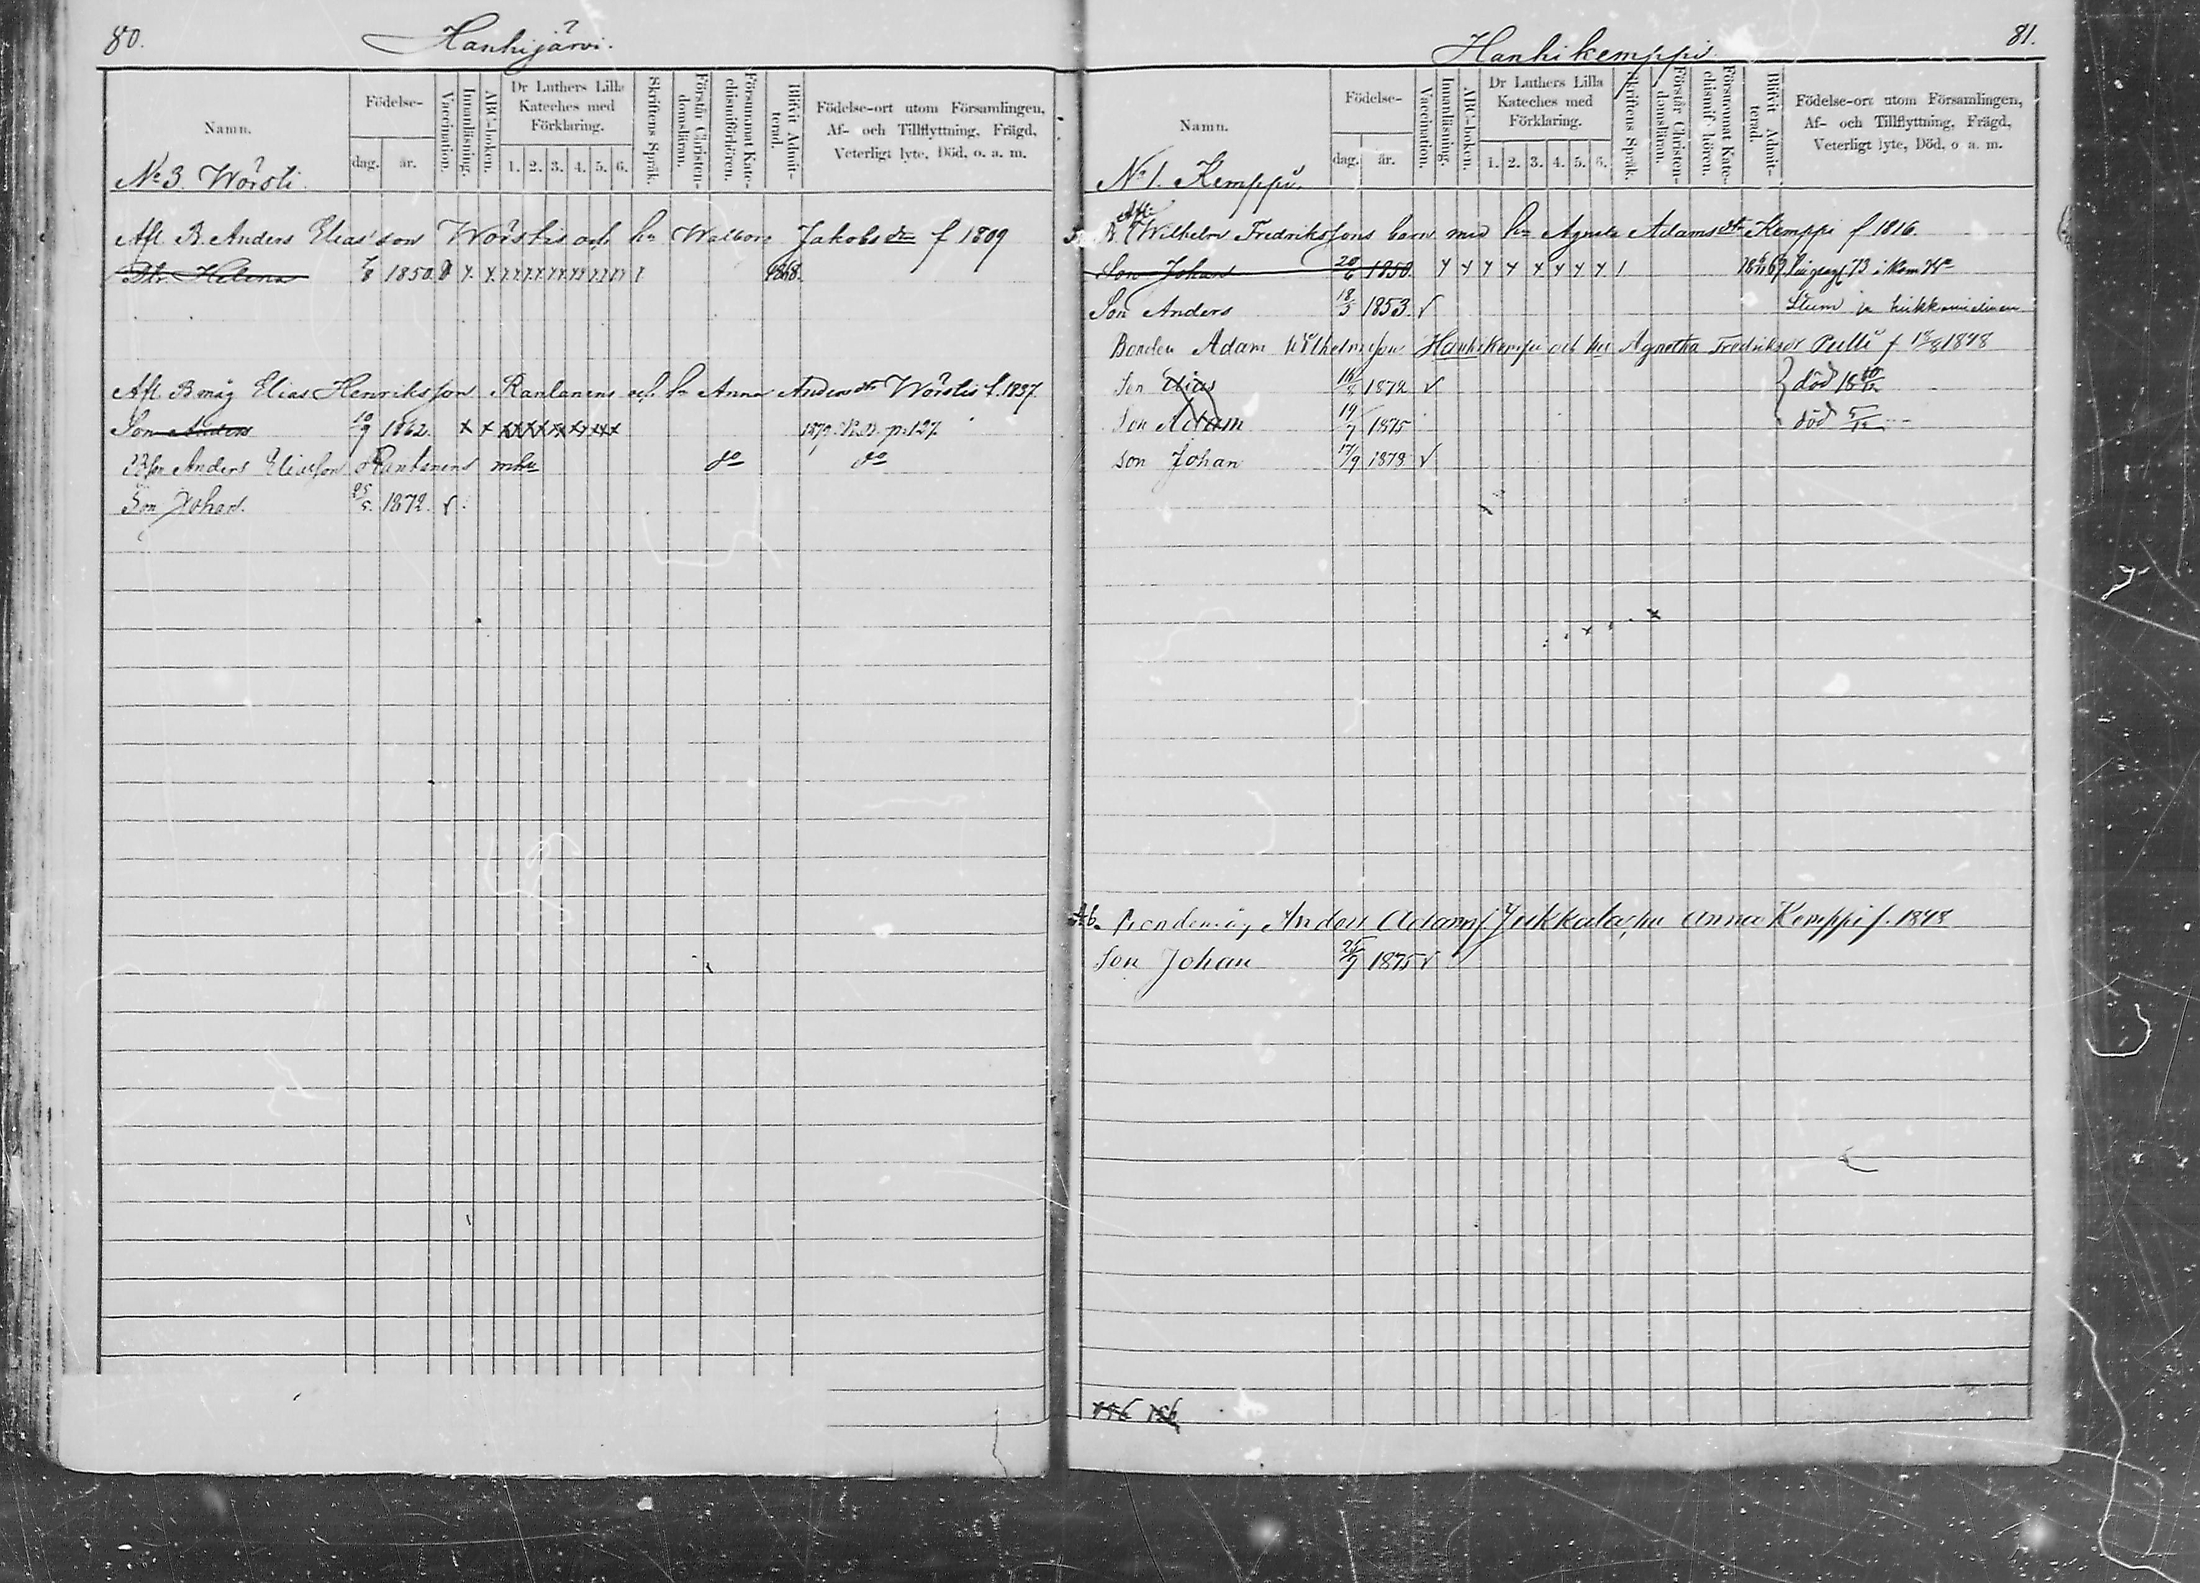 80.
Hanhijärvi.
Namn.
Födelse-
dag.
år.
Vaccination.
Innanläsning.
ABC-boken.
Dr Luthers Lilla
Kateches med
Förklaring.
1. 2. 3. 4. 5. 6.
Skriftens Språk.
Förstår Christen-
domsläran.
Försummat Kate-
chismiförhören.
Blifvit Admit-
terad.
Födelse-ort utom Församlingen,
Af- och Tillflyttning, Frägd,
Veterligt lyte, Död, o. a. m.
No 3. Wörsti.
Afl. B. Anders Elias'son Wörstis och hu Walborg Jakobsdr f 1809
Dtr. Helena 7/8 1850. 1868.
Afl. B.måg Elias Henriksson Rantanens och hu Anna Andersdtr Wörstis f. 1837.
Son Anders 10/9 1862. x x p. 127.
Anders Eliasson Rantanens do do
Son Johan. 25/5. 1872. v.
81.
Hanhikemppi
Namn.
Födelse-
dag.
år.
Vaccination.
Innanläsning.
ABC-boken.
Dr Luthers Lilla
Kateches med
Förklaring.
1. 2. 3. 4. 5. 6.
Skriftens Språk.
Förstår Christen-
domsläran.
Försummat Kate-
chismiförhören.
Blifvit Admit-
terad.
Födelse-ort utom Församlingen,
Af- och Tillflyttning, Frägd,
Veterligt lyte, Död, o a. m.
No 1. Kemppi.
Afl.
B. Wilhelm Fredrikssons barn med hu Agneta Adamsdtr Kemppi f 1816.
Son Johan 20/6 1850.
Son Anders 18/3 1853. v
Bonden Adam Wilhelmsson Hanhikemppi och hu Agnetha Fredriksdr Pulli f 1848
Son Elias 1872 v död
Son Adam 19/7 1875 död 5/12
son Johan 17/9 1878 v
Anders Adamss Jukkala, hu Anna Kemppi f. 1848
Son Johan 25/9 1875 v